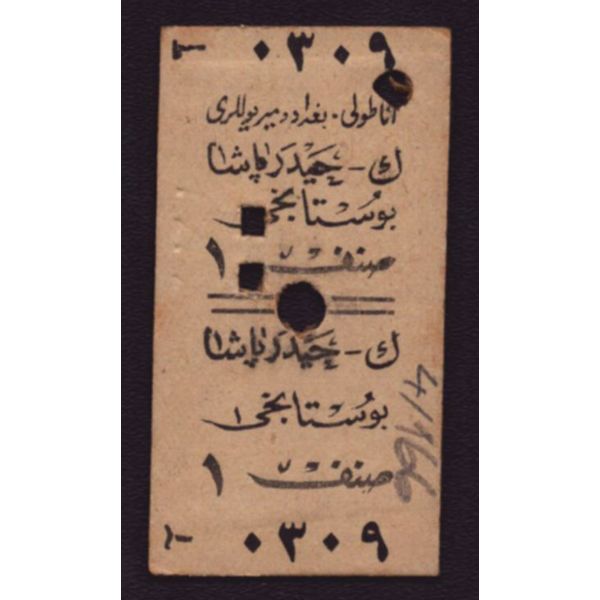 T ٠٣٠٩
اناطولی. بغداد دمیریوللری
ك - حیدرپاشا
بوستانجی
صنف ١
ك - حیدرپاشا
بوستانجی ١
صنف ١
T ٠٣٠٩